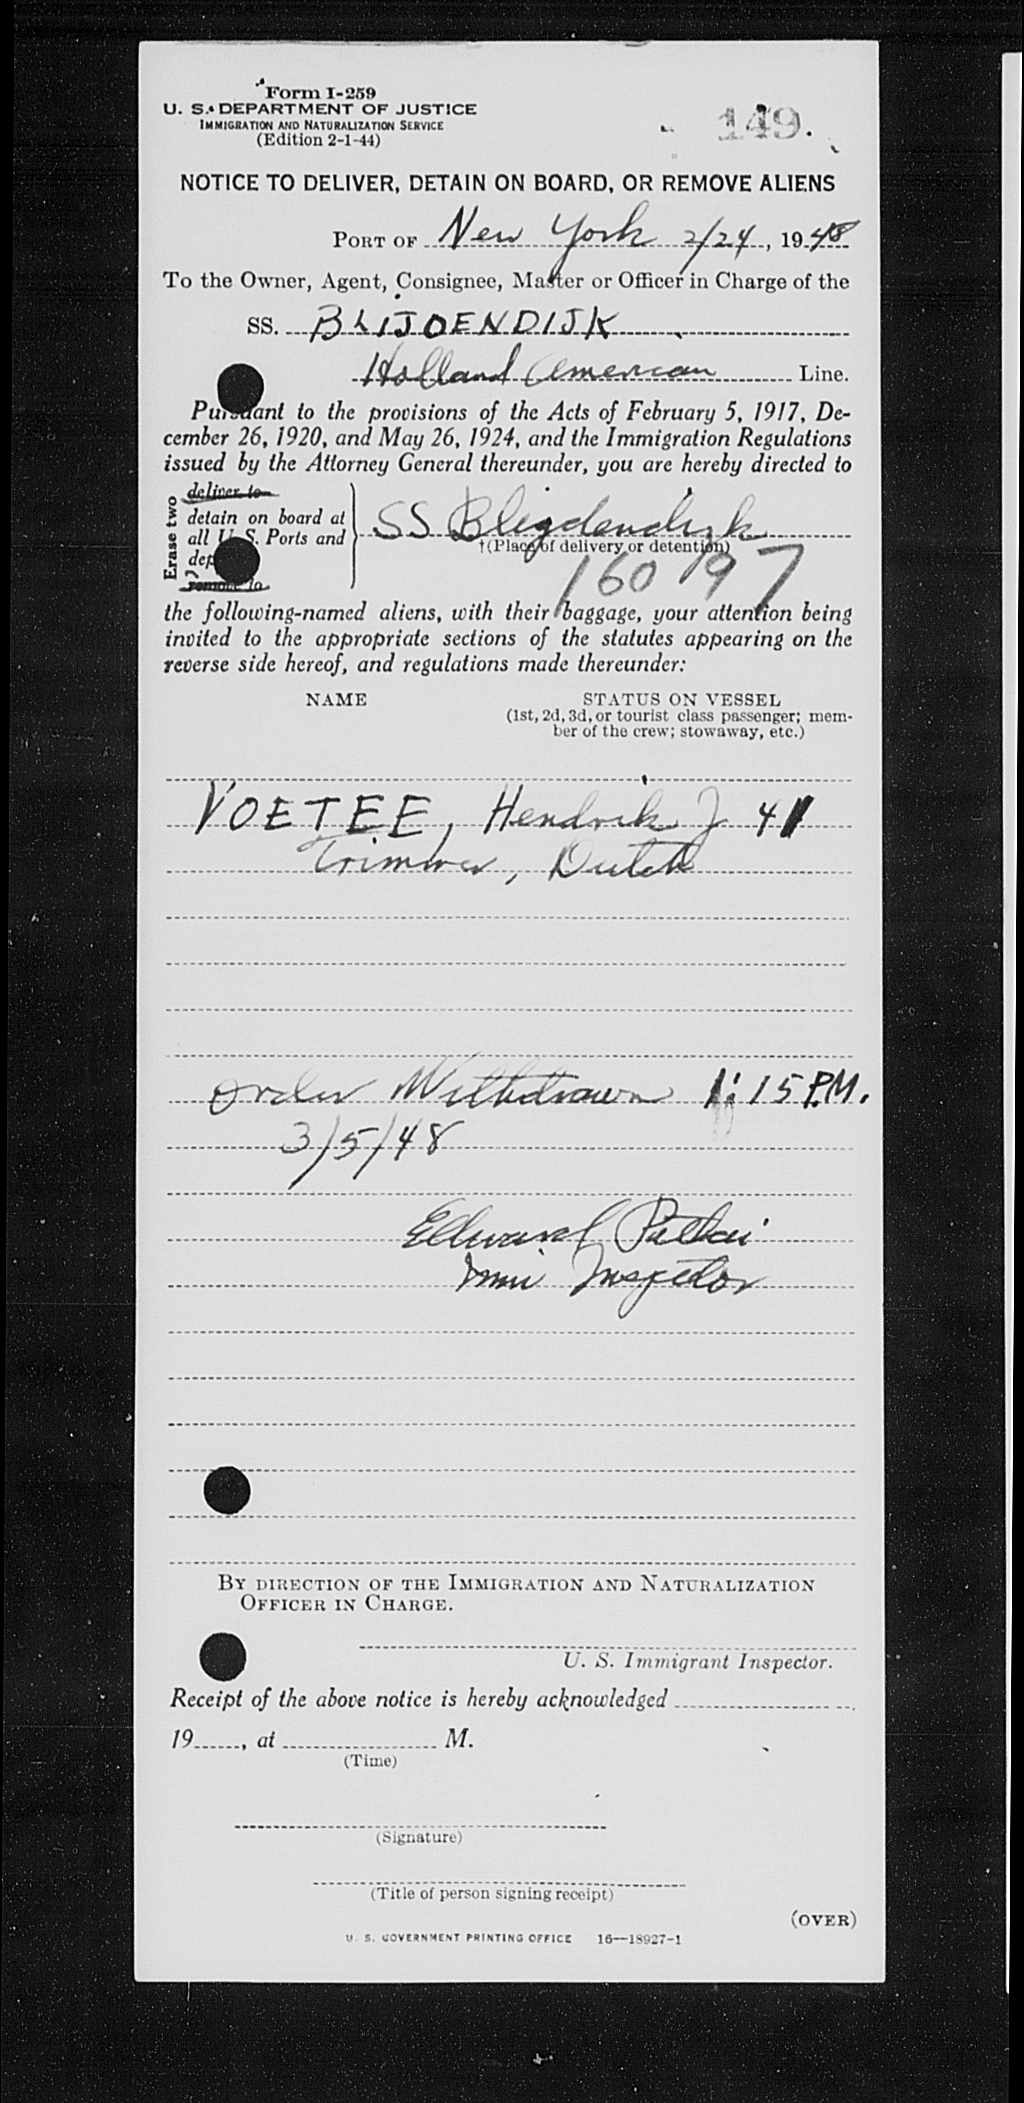 Form I-259
U. S. DEPARTMENT OF JUSTICE
IMMIGRATION AND NATURALIZATION SERVICE
(Edition 2-1-44)
149.
NOTICE TO DELIVER, DETAIN ON BOARD, OR REMOVE ALIENS
PORT OF New York 2/24, 1948
To the Owner, Agent, Consignee, Master or Officer in Charge of the
SS. BLIJDENDIJK
Holland American Line.
Pursuant to the provisions of the Acts of February 5, 1917, De-
cember 26, 1920, and May 26, 1924, and the Immigration Regulations
issued by the Attorney General thereunder, you are hereby directed to
Erase two
deliver to
detain on board at
all U. S. Ports and
remove to
SS Bligdendizk
†(Place of delivery or detention)
160 197
the following-named aliens, with their baggage, your attention being
invited to the appropriate sections of the statutes appearing on the
reverse side hereof, and regulations made thereunder:
NAME STATUS ON VESSEL
(1st, 2d, 3d, or tourist class passenger; mem-
ber of the crew; stowaway, etc.)
VOETEE, Hendrik J 41
Trimmer, Dutch
Order Withdrawn 1:15 P.M.
3/5/48
Edward
Imm Inspector
BY DIRECTION OF THE IMMIGRATION AND NATURALIZATION
OFFICER IN CHARGE.
U. S. Immigrant Inspector.
Receipt of the above notice is hereby acknowledged
19......, at M.
(Time)
(Signature)
(Title of person signing receipt)
(OVER)
U. S. GOVERNMENT PRINTING OFFICE 16—18927-1